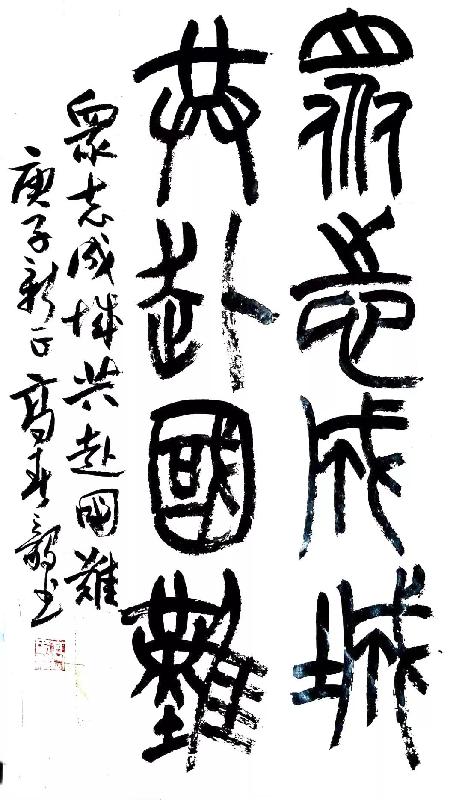 眾志成城
共赴國難
眾志成城共赴國難
庚子新正高春韵书